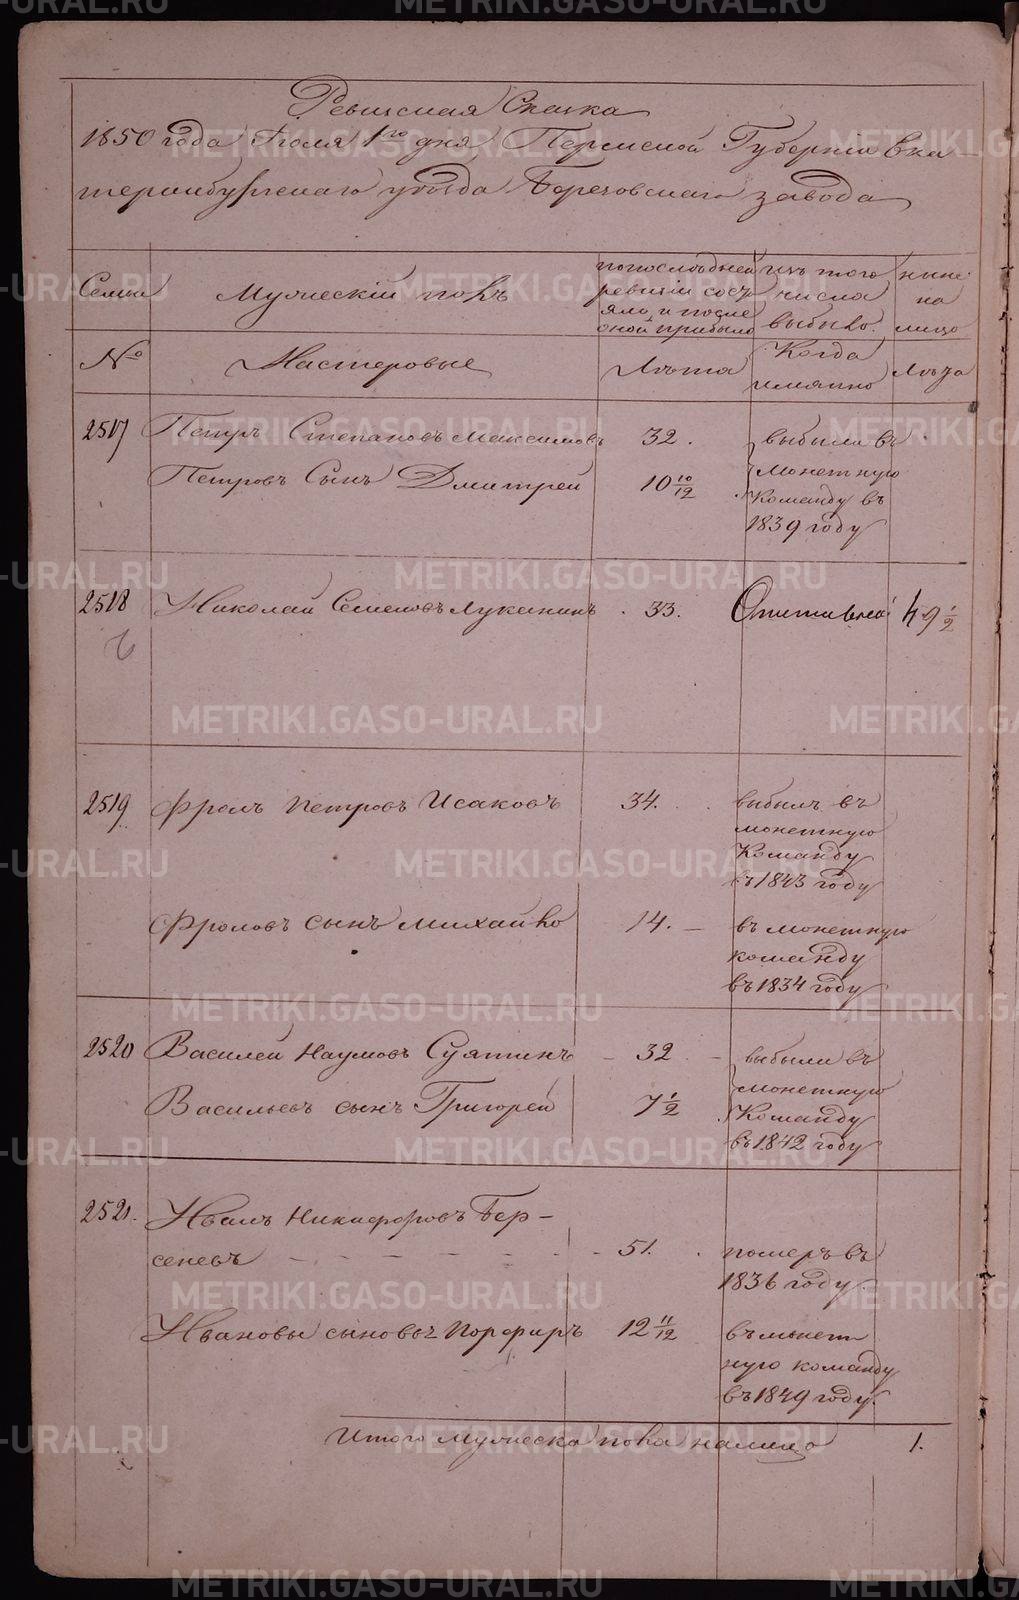 Ревизская Сказка
1850 года Июля 1го дня Пермской Губернiи Ека
теринбургскаго уезда Березовскаго завода
Семьи
Мужескiй полъ
по последней
ревизiи состо
яло, и после
оной прибыло
изъ того
числа
выбыло.
ныне
на
лицо
№
Мастеровые
Лета
Когда
имянно
Лета
2517 Петръ Степановъ Максимовъ 32. выбыли въ
Петровъ Сынъ Дмитрей 10 10/12 монетную
Команду въ
1839 году
2518 Николай Семеновъ Лукининъ 33. 49 1/2
2519 Фролъ Петровъ Исаковъ 34. выбылъ въ
монетную
Команду
въ 1843 году
Фроловъ сынъ Михайло 14. въ монетную
команду
въ 1834 году
2520 Василей Наумовъ Суятинъ 32 выбыли въ
монетную
Васильевъ сынъ Григорей 7 1/2 Команду
въ 1842 году
2521. Иванъ Никифоровъ Бер-
сеневъ 51. померъ въ
1836 году
Ивановы сыновья Порфиръ 12 11/12 въ монет
ную команду
въ 1849 году.
Итого мужеска пола налицо 1.
METRIKI.GASO-URAL.RU